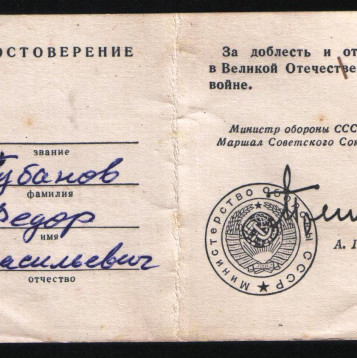 ОСТОВЕРЕНИЕ
звание
Губанов
фамилия
Федор
имя
асильевич
отчество
За доблесть и от
в Великой Отечестве
войне.
Министр обороны ССС
Маршал Советского Сою
А. Г
Министерство Обороны СССР